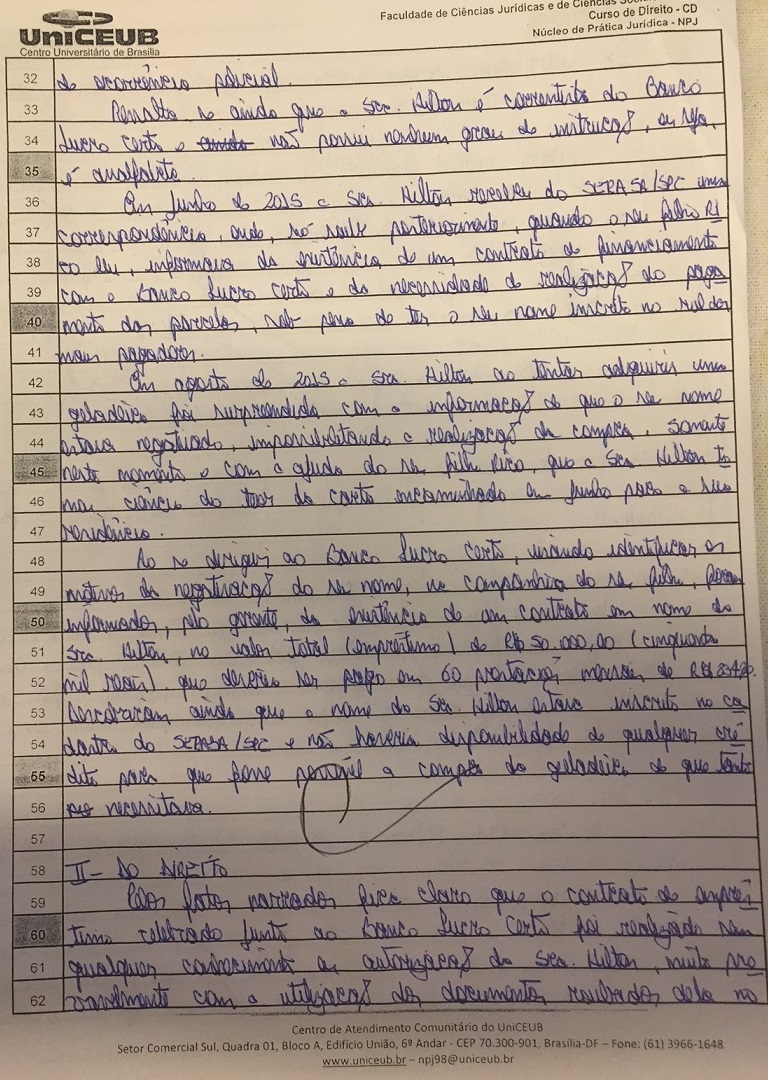 UniCEUB
Centro Universitário de Brasília
Faculdade de Ciências Jurídicas e de Ciências
Curso de Direito - CD
Núcleo de Prática Jurídica - NPJ
32 de ocorrência policial.
33 Ressalta-se ainda que a Sra. Hilton é correntista do Banco
34 Lucro Certo e não possui nenhum grau de instrução, ou seja,
35 é analfabeta.
36 Em junho de 2015 a Sra. Hilton recebeu do SERASA/SPC uma
37 correspondência, onde, só soube posteriormente, quando o seu filho Ri
38 co leu, informava da existência de um contrato de financiamento
39 com o Banco Lucro Certo e da necessidade de realização do paga
40 mento das parcelas, sob pena de ter o seu nome inscrito no rol dos
41 maus pagadores.
42 Em agosto de 2015 a Sra. Hilton ao tentar adquirir uma
43 geladeira foi surpreendida com a informação de que o seu nome
44 estava negativado, impossibilitando a realização da compra. Somente
45 neste momento e com a ajuda do seu filho Rico, que a Sra Hilton to
46 mou ciência do teor da carta encaminhada em junho para a sua
47 residência.
48 Ao se dirigir ao Banco Lucro Certo, visando identificar os
49 motivos da negativação do seu nome, na companhia do seu filho, foram
50 informados, pelo gerente, da existência de um contrato em nome da
51 Sra. Hilton, no valor total (empréstimo) de R$ 50.000,00 (cinquenta
52 mil reais), que deveria ser pago em 60 prestações mensais de R$
53 ainda que o nome da Sra. Hilton estava inscrito no ca
54 dastro do SERASA/SPC e não haveria disponibilidade de qualquer cré
55 dito para que fosse possível a compra da geladeira de que tanto
56 necessitava.
57
58 II- DO DIREITO
59 Pelos fatos narrados fica claro que o contrato de emprés
60 timo celebrado junto ao Banco Lucro Certo foi realizado sem
61 qualquer conhecimento ou autorização da Sra. Hilton, muito pro
62 vavelmente com a utilização dos documentos roubados dela no
Centro de Atendimento Comunitário do UniCEUB
Setor Comercial Sul, Quadra 01, Bloco A, Edifício União, 6º Andar - CEP 70.300-901, Brasília-DF – Fone: (61) 3966-1648
www.uniceub.br – npj98@uniceub.br